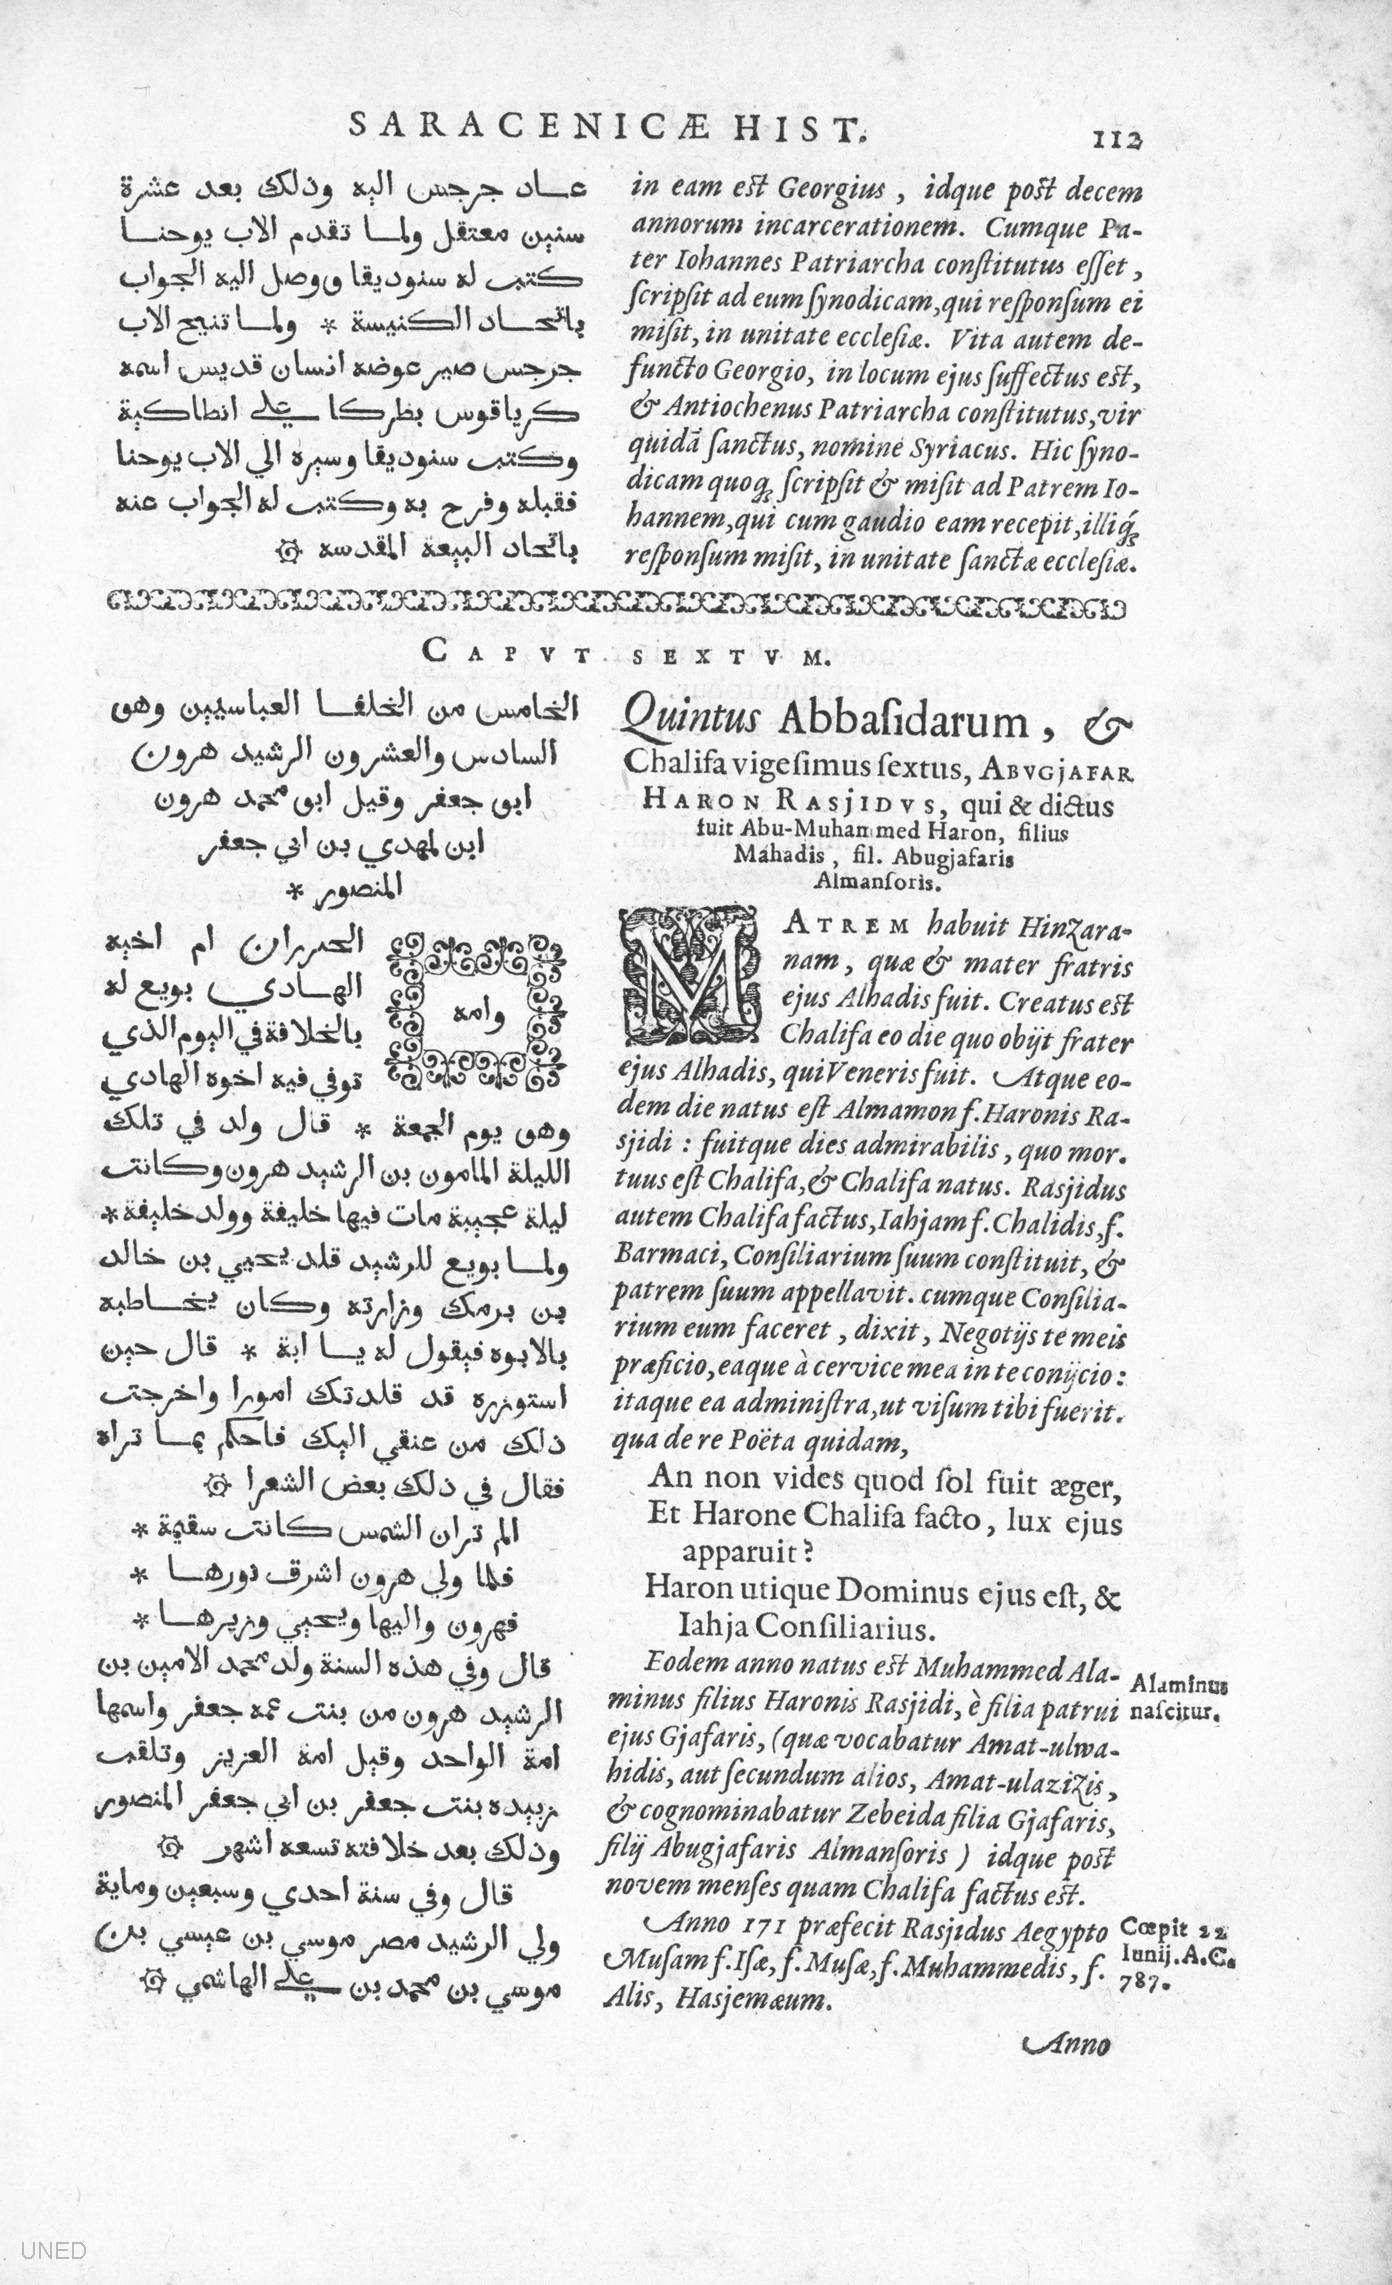 SARACENICÆ HIST.
112
عاد جرجس اليه وذلك بعد عشرة
سنين معتقل ولما تقدم الاب يوحنا
كتب له سنوديقا ووصل اليه الجواب
باتحاد الكنيسة * ولما تنيح الاب
جرجس صير عوضه انسان قديس اسمه
كرياقوس بطركا علي انطاكية
وكتب سنوديقا وسيره الي الاب يوحنا
فقبله وفرح به وكتب له الجواب عنه
باتحاد البيعة المقدسه
in eam eſt Georgius, idque poſt decem
annorum incarcerationem. Cumque Pa-
ter Iohannes Patriarcha conſtitutus eſſet,
ſcripſit ad eum ſynodicam, qui reſponſum ei
miſit, in unitate eccleſiæ. Vita autem de-
functo Georgio, in locum ejus ſuffectus eſt,
& Antiochenus Patriarcha conſtitutus, vir
quidã ſanctus, nomine Syriacus. Hic ſyno-
dicam quoq; ſcripſit & miſit ad Patrem Io-
hannem, qui cum gaudio eam recepit, illiq́;
reſponſum miſit, in unitate ſanctæ eccleſiæ.
CAPVT SEXTVM.
الخامس من الخلفا العباسيين وهو
السادس والعشرون الرشيد هرون
ابو جعفر وقيل ابو محمد هرون
ابن لمهدي بن ابي جعفر
المنصور *
وامه
الحيرران ام اخيه
الهادي بويع له
بالخلافة في اليوم الذي
توفي فيه اخوه الهادي
وهو يوم الجمعة * قال ولد في تلك
الليلة المامون بن الرشيد هرون وكانت
ليلة عجيبة مات فيها خليفة وولد خليفة *
ولما بويع للرشيد قلد يحيي بن خالد
بن برمك وزارته وكان يخاطبه
بالابوه فيقول له يا ابة * قال حين
استوزره قد قلدتك امورا واخرجت
ذلك من عنقي اليك فاحكم بما تراه
فقال في ذلك بعض الشعرا
الم تران الشمس كانت سقيمة *
فلما ولي هرون اشرق نورها *
فهرون واليها ويحيي وزيرها *
قال وفي هذه السنة ولد محمد الامين بن
الرشيد هرون من بنت عمه جعفر واسمها
امة الواحد وقيل امة العزيز وتلقب
زبيده بنت جعفر بن ابي جعفر المنصور
وذلك بعد خلافته تسعه اشهر
قال وفي سنة احدي وسبعين وماية
ولي الرشيد مصر موسي بن عيسي بن
موسي بن محمد بن علي الهاشمي
Quintus Abbaſidarum, &
Chalifa vigeſimus ſextus, ABVGJAFAR
HARON RASJIDVS, qui & dictus
fuit Abu-Muhammed Haron, filius
Mahadis, fil. Abugjafaris
Almanſoris.
MATREM habuit Hinzara-
nam, quæ & mater fratris
ejus Alhadis fuit. Creatus eſt
Chalifa eo die quo obijt frater
ejus Alhadis, qui Veneris fuit. Atque eo-
dem die natus eſt Almamon f. Haronis Ra-
sjidi: fuitque dies admirabilis, quo mor.
tuus eſt Chalifa, & Chalifa natus. Rasjidus
autem Chalifa factus, Iahjam f. Chalidis, f.
Barmaci, Conſiliarium ſuum conſtituit, &
patrem ſuum appellavit. cumque Conſilia-
rium eum faceret, dixit, Negotijs te meis
præficio, eaque à cervice mea in te conijcio:
itaque ea adminiſtra, ut viſum tibi fuerit.
qua de re Poëta quidam,
An non vides quod ſol fuit æger,
Et Harone Chalifa facto, lux ejus
apparuit?
Haron utique Dominus ejus eſt, &
Iahja Conſiliarius.
Eodem anno natus eſt Muhammed Ala-
minus filius Haronis Rasjidi, è filia patrui
ejus Gjafaris, (quæ vocabatur Amat-ulwa-
hidis, aut ſecundum alios, Amat-ulazizis,
& cognominabatur Zebeida filia Gjafaris,
filij Abugjafaris Almanſoris) idque poſt
novem menſes quam Chalifa factus eſt.
Alaminus
naſcitur.
Anno 171 præfecit Rasjidus Aegypto
Muſam f. Iſæ, f. Muſæ, f. Muhammedis, f.
Alis, Hasjemæum.
Cœpit 22
Iunij. A. C.
787.
Anno
UNED